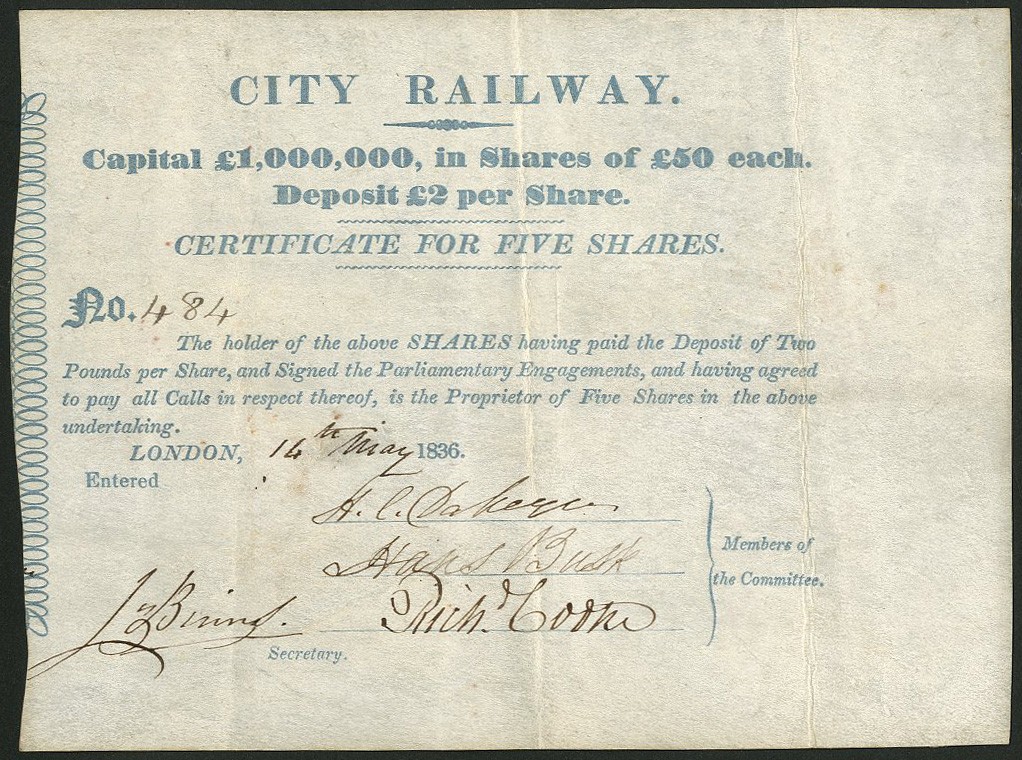 CITY RAILWAY.
Capital £1,000,000, in Shares of £50 each.
Deposit £2 per Share.
CERTIFICATE FOR FIVE SHARES.
No. 484
The holder of the above SHARES having paid the Deposit of Two
Pounds per Share, and Signed the Parliamentary Engagements, and having agreed
to pay all Calls in respect thereof, is the Proprietor of Five Shares in the above
undertaking.
LONDON, 14th May 1836.
Entered
H. C.
Hans Busk
Members of
the Committee.
Binns.
Richd. Cooke
Secretary.